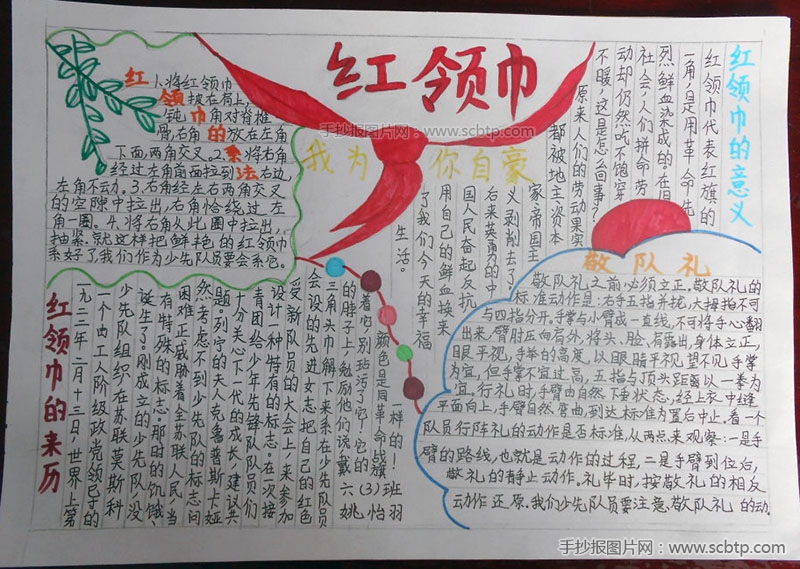 红领巾
我为你自豪
红领巾的系法
1、将红领巾
披在肩上,
钝角对脊椎
骨,右角放在左角
下面,两角交叉。2、将右角
经过左角前面拉到右边,
左角不动。3、右角经左右两角交叉
的空隙中拉出,右角恰绕过左
角一圈。4、将右角从此圈中拉出,
抽紧。就这样把鲜艳的红领巾
系好了我们作为少先队员要会系它。
红领巾的意义
红领巾代表红旗的
一角,是用革命先
烈鲜血染成的在旧
社会,人们拼命劳
动却仍然吃不饱穿
不暖,这是怎么回事?
原来人们的劳动果实
都被地主资本
家帝国主
义剥削去了
后来英勇的中
国人民奋起反抗
用自己的鲜血换来
了我们今天的幸福
生活。
敬队礼
敬队礼之前必须立正,敬队礼的
标准动作是:右手五指并拢,大拇指不可
与四指分开,手掌与小臂成一直线,不可将手心翻
出来,臂肘应向右外,将头、脸,有露出,身体立正,
眼平视,手举的高度,以眼睛平视望不见手掌
为宜,但手掌不宜过高,五指与顶头距离以一拳为
宜。行礼时,手臂由自然下垂状态,经上衣中缝
平面向上,手臂自然弯曲,到达标准为置后中止。看一个
队员行阵礼的动作是否标准,从两点来观察:一是手
臂的路线,也就是动作的过程,二是手臂到位后,
敬礼的静止动作。礼毕时,按敬礼的相反
动作还原。我们少先队员要注意、敬队礼的动.
红领巾的来历
一九二二年二月十三日,世界上第
一个由工人阶级政党领导的
少先队组织在苏联莫斯科
诞生了。刚成立的少先队,没
有特殊的标志。那时的饥饿、
困难正威胁着全苏联人民,当
然考虑不到少先队的标志问
题。列宁的夫人克鲁普斯卡娅
十分关心下一代的成长,建议共
青团给少年先锋队队员们
设计一种特有的标志。在一次接
受新队员的大会上,来参加
会设的先进女志把自己的红色
三角头巾解下来系在少先队员
的脖子上,勉励他们说戴
着它,别玷污了它!它的
颜色是同革命战旗
一样的!
六(3)班
姚怡羽
手抄报图片网:www.scbtp.com
手抄报图片网:www.scbtp.com